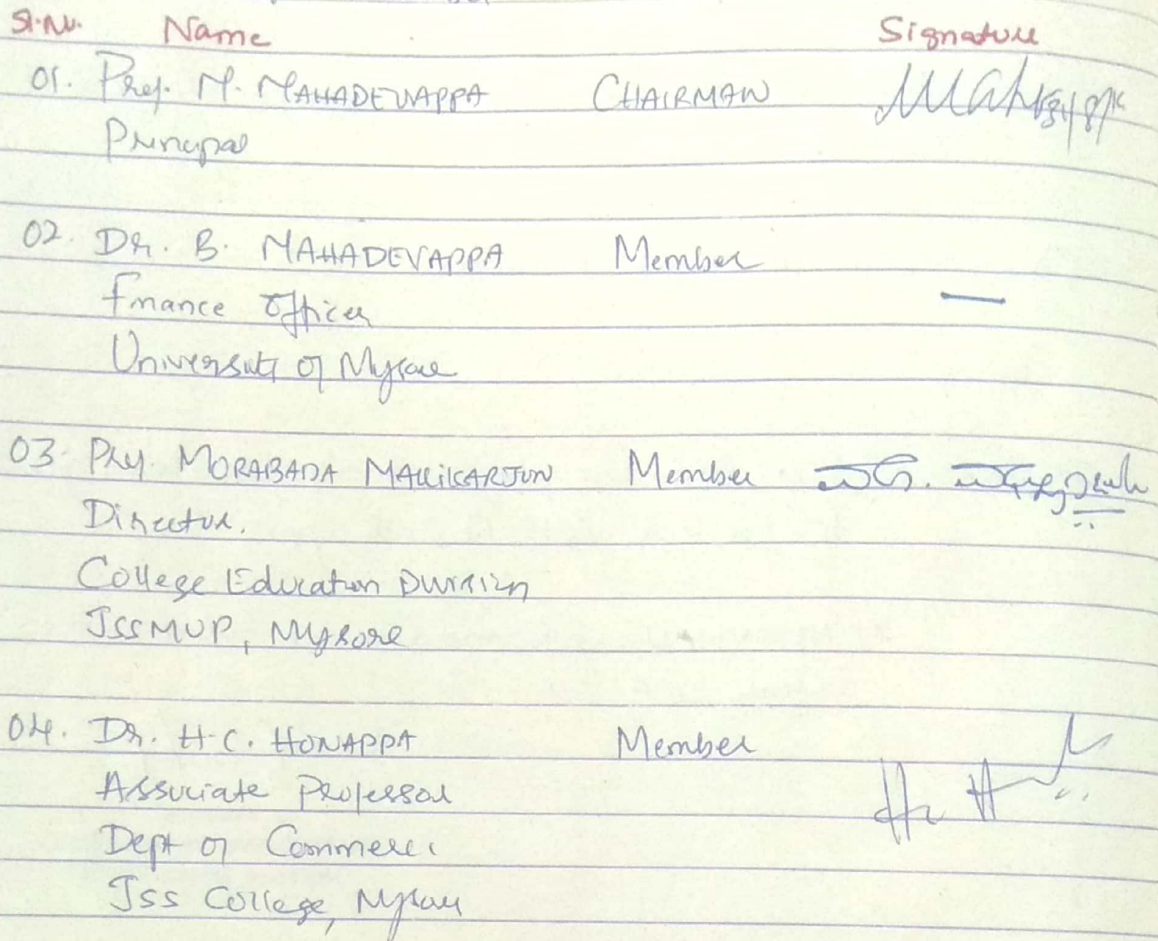 Sl.No. Name Signature
01. Prof. M. MAHADEVAPPA CHAIRMAN
Principal
02. Dr. B. MAHADEVAPPA Member —
Finance Officer
University of Mysore
03. Prof. MORABADA MALLIKARJUN Member
Director.
College Education Division
JSSMVP, Mysore
04. Dr. H.C. HONAPPA Member
Associate Professor
Dept of Commerce
JSS College, Mysore